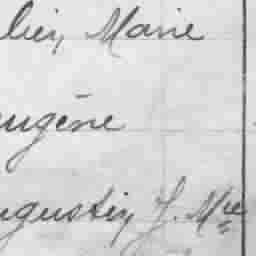 lien Marie
eugène
ugustin J. Mie